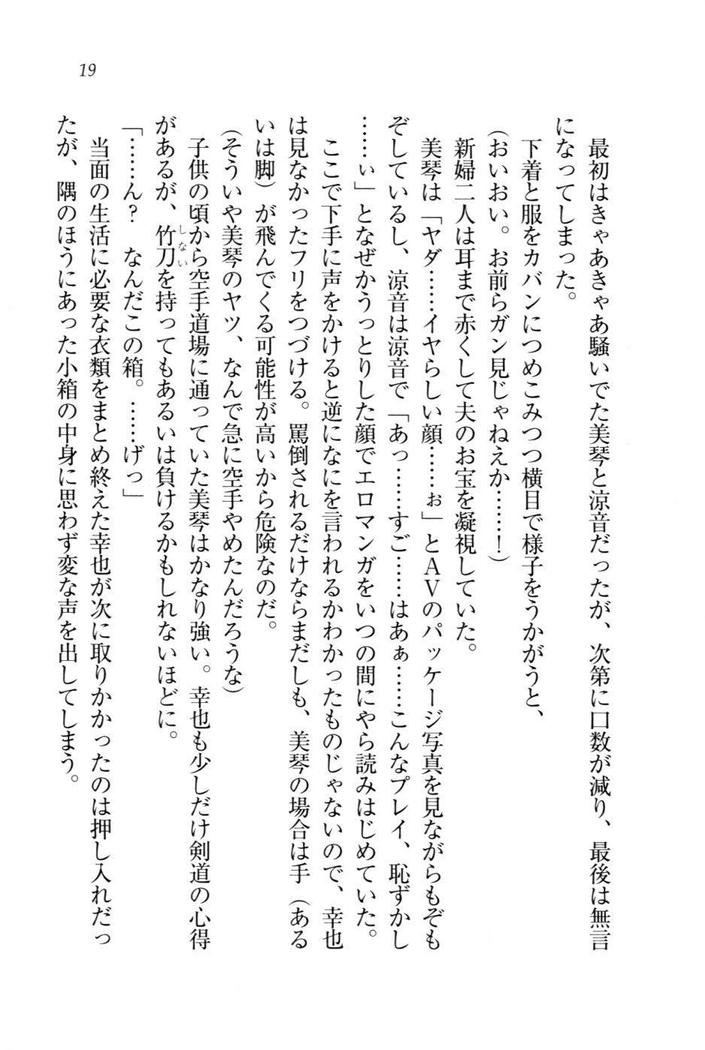 19
最初はきゃあきゃあ騒いでた美琴と涼音だったが、次第に口数が減り、最後は無言
になってしまった。
下着と服をカバンにつめこみつつ横目で様子をうかがうと、
（おいおい。お前らガン見じゃねえか……！）
新婦二人は耳まで赤くして夫のお宝を凝視していた。
美琴は「ヤダ……イヤらしい顔……ぉ」とＡＶのパッケージ写真を見ながらもぞも
ぞしているし、涼音は涼音で「あっ……すご……はあぁ……こんなプレイ、恥ずかし
……ぃ」となぜかうっとりした顔でエロマンガをいつの間にやら読みはじめていた。
ここで下手に声をかけると逆になにを言われるかわかったものじゃないので、幸也
は見なかったフリをつづける。罵倒されるだけならまだしも、美琴の場合は手（ある
いは脚）が飛んでくる可能性が高いから危険なのだ。
（そういや美琴のヤツ、なんで急に空手やめたんだろうな）
子供の頃から空手道場に通っていた美琴はかなり強い。幸也も少しだけ剣道の心得
があるが、竹刀しないを持ってもあるいは負けるかもしれないほどに。
「……ん？　なんだこの箱。……げっ」
当面の生活に必要な衣類をまとめ終えた幸也が次に取りかかったのは押し入れだっ
たが、隅のほうにあった小箱の中身に思わず変な声を出してしまう。